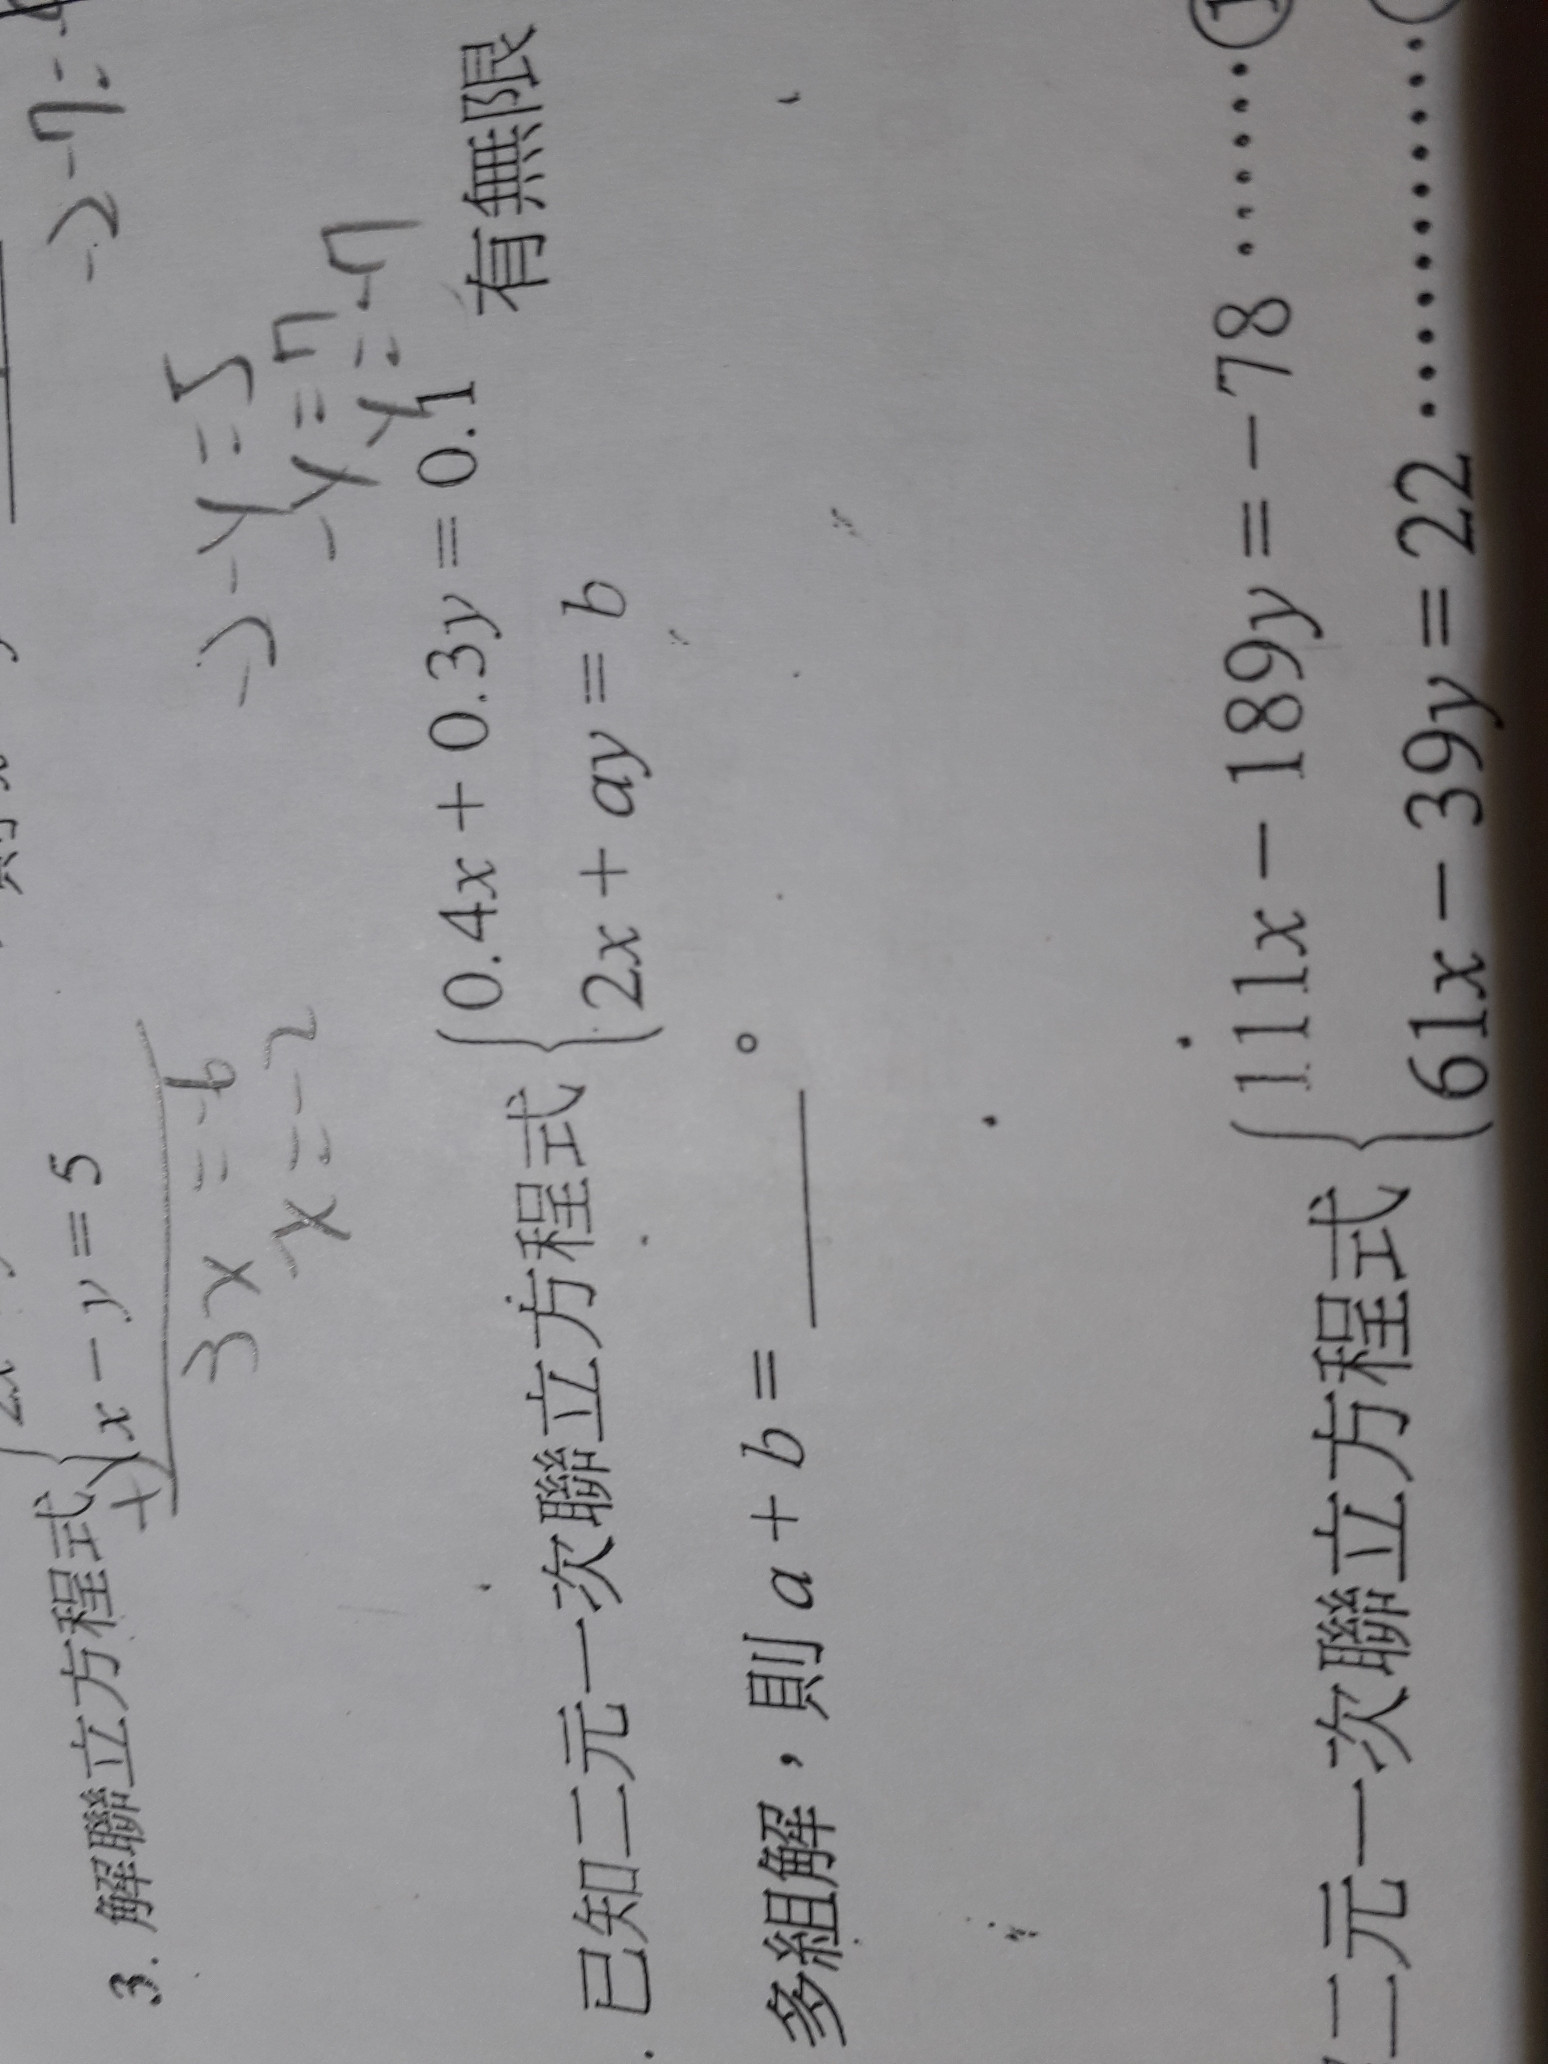 3. 解聯立方程式
x − y = 5
3x = -6
x = -2
-2-y=5
-y=7
y=-7
已知二元一次聯立方程式 { 0.4x + 0.3y = 0.1 有無限
2x + ay = b
多組解，則 a + b = ______。
二元一次聯立方程式 { 111x − 189y = −78 ⋯⋯ ①
61x − 39y = 22 ⋯⋯⋯⋯